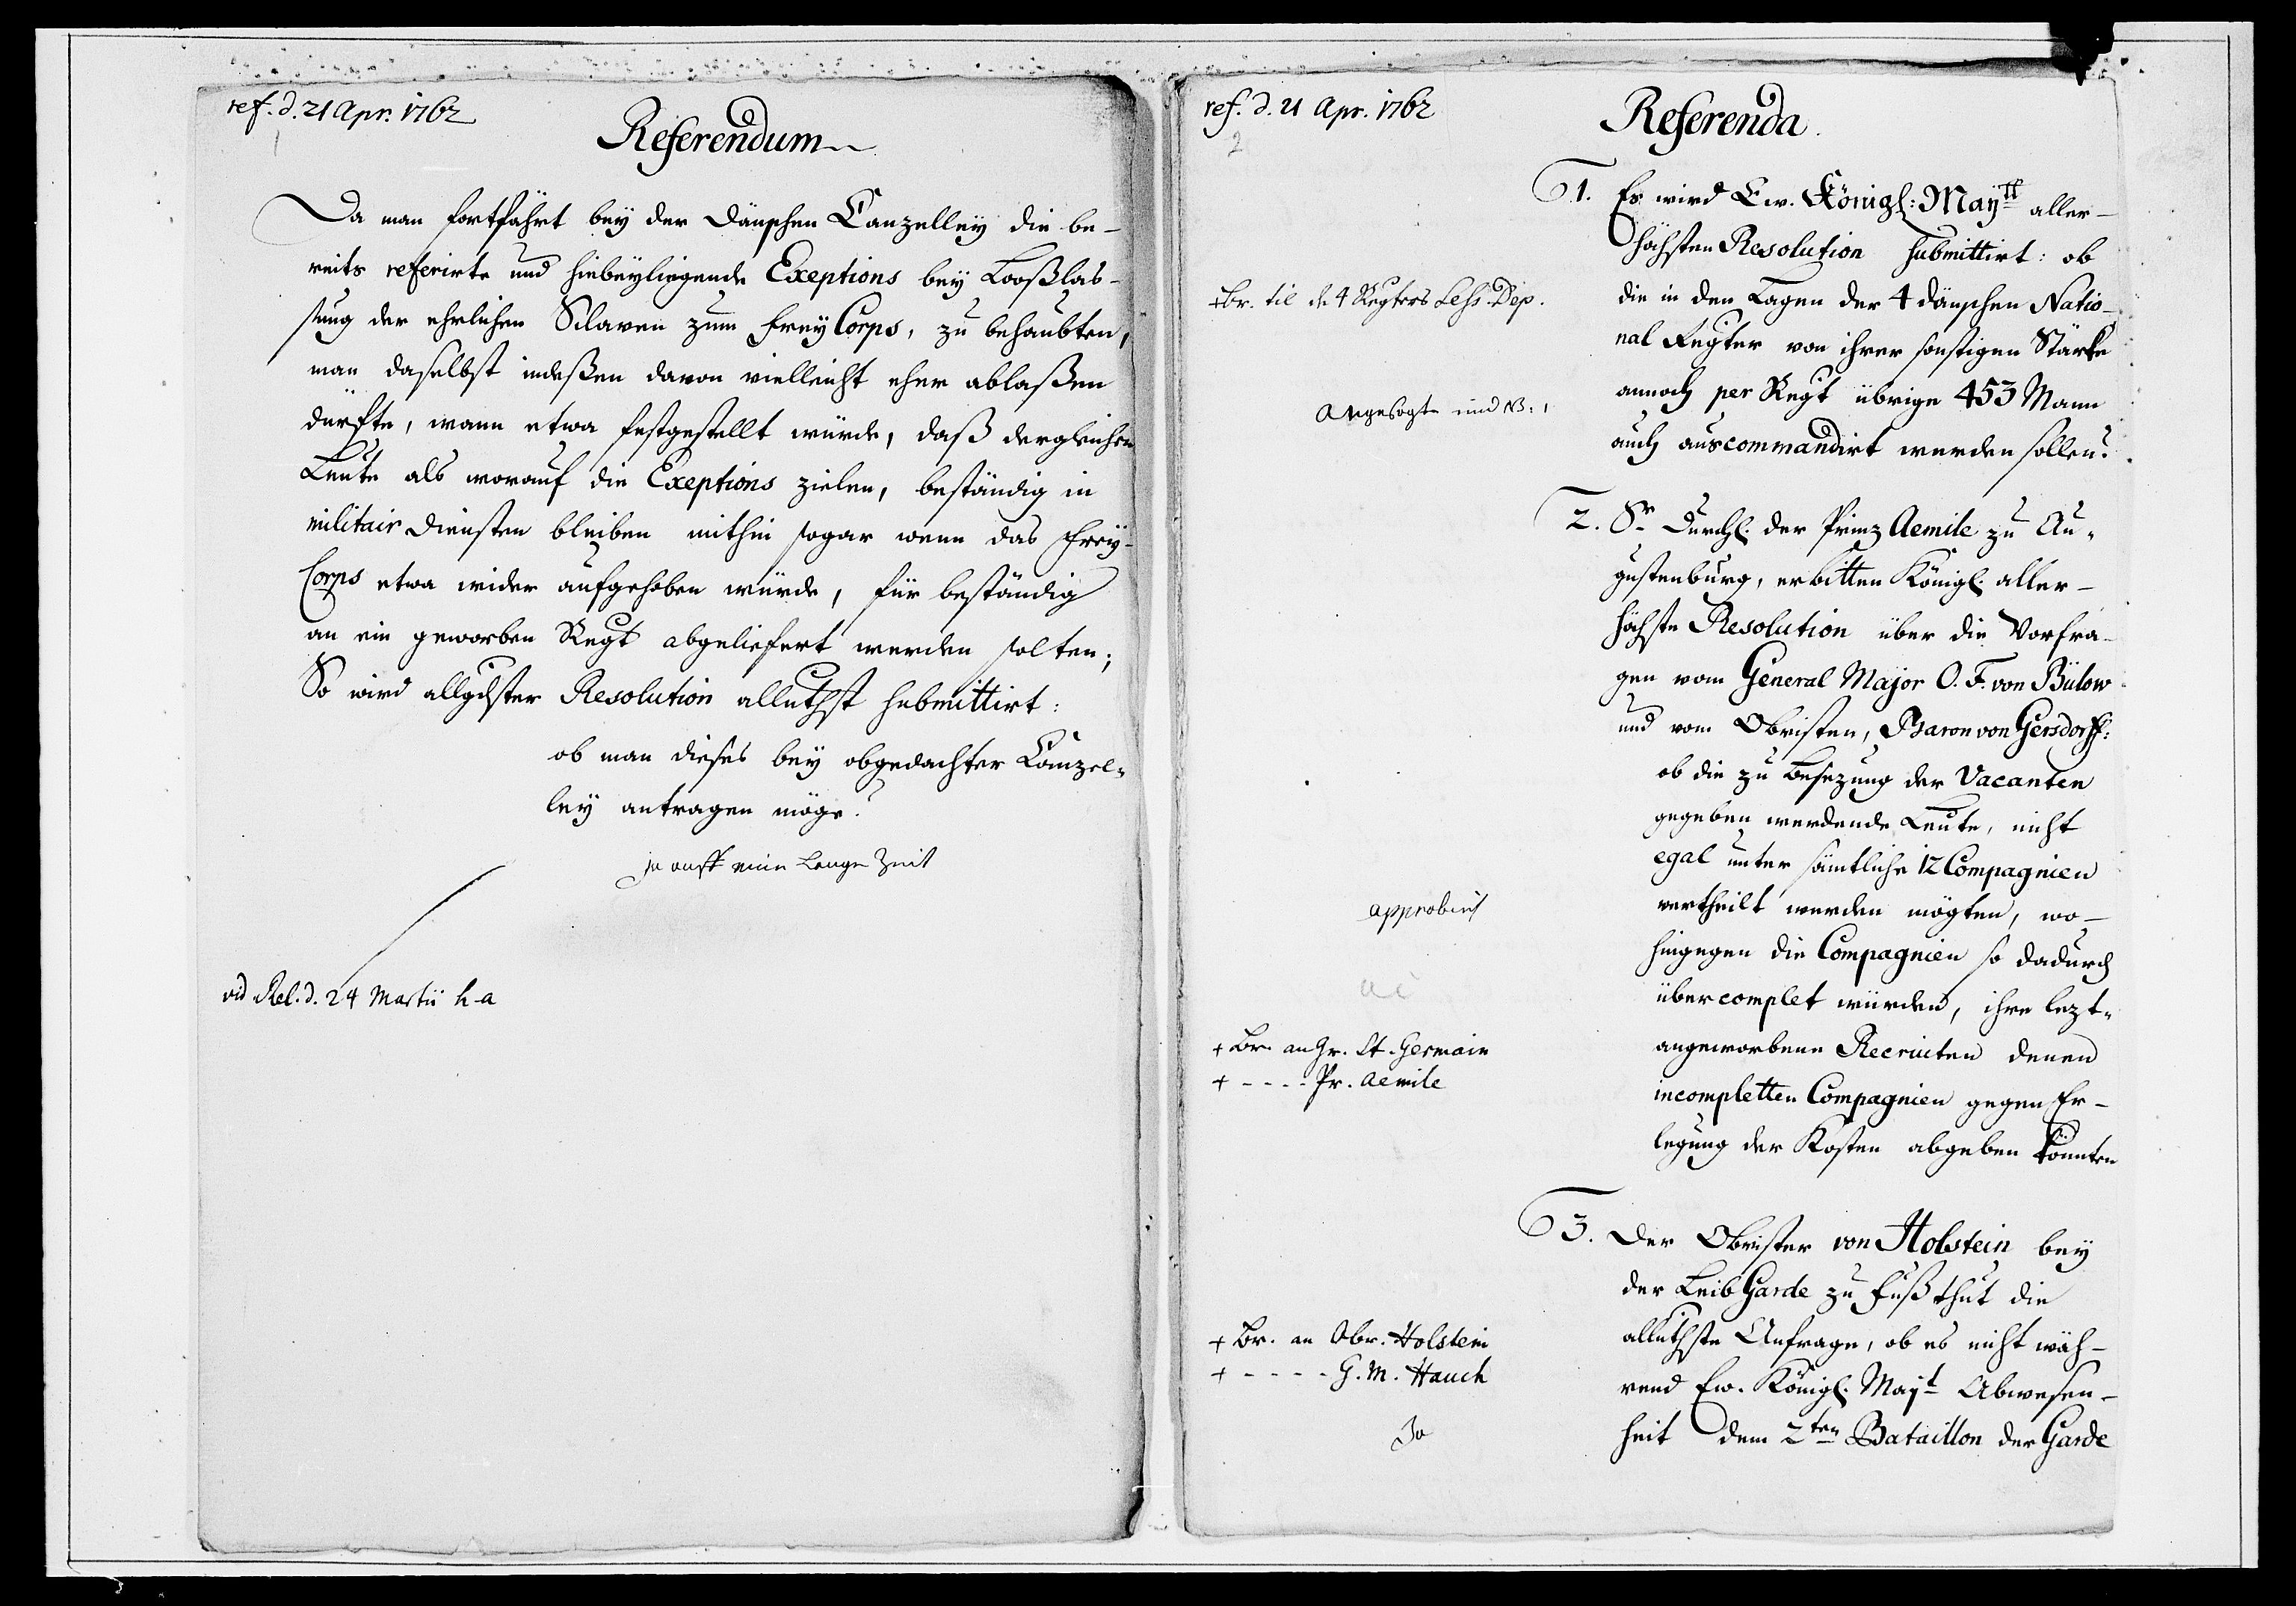 ref. d. 21 Apr. 1762
1
Referendum
Da man fortfährt bey der dänschen Canzelley die be-
reits referirte und hiebeyliegende Exeptions bey Looßlas-
sung der ehrlichen Sclaven zum Frey Corps, zu behaubten,
man daselbst indeßen davon vielleicht eher ablaßen
dürfte, wann etwa festgestellt würde, daß dergleichen
Leute als worauf die Exeptions zielen, beständig in
militair Diensten bleiben mithin sogar wenn das Frey-
Corps etwa wider aufgehoben würde, für beständig
an ein geworben Regt abgeliefert werden solten;
So wird allgdster Resolution alluthst submittirt:
ob man dieses bey obgedachter Canzel=
ley antragen möge?
ja auff eine Lange Zeit
vid Rel. d. 24 Martii h. a
ref. d. 21 Apr. 1762
2
Referenda.
1. Es wird Ew. Königl: Maytt aller-
höchsten Resolution submittirt: ob
+Br. til de 4 Regters Sess. Dep.
die in den Lagen der 4 dänschen Natio-
nal Regter von ihrer sonstigen Stärke
annoch per Regt übrige 453 Mann
auch auscommandirt werden sollen?
2. Sr Durchl. der Prinz Aemile zu Au=
gustenburg, erbitten Königl. aller-
höchste Resolution über die Vorfra-
gen vom General Major O. F. von Bülow
und vom Obristen, Baron von Gersdorff:
ob die zu Besezung der Vacanten
gegeben werdende Leute, nicht
egal unter sämtliche 12 Compagnien
approbirt
vertheilt werden mögten, wo-
hingegen die Compagnien so dadurch
übercomplet würden, ihre lezt=
+ Br. an Gr. St. Germain
angeworbene Recruten denen
+ - - - - Pr. Aemile
incompletten Compagnien gegen Er-
legung der Kosten abgeben könnten
3. Der Obrister von Holstein bey
der Leib Garde zu Fuß thut die
+ Br. an Obr. Holstein
alluthste Anfrage, ob es nicht wäh-
+ - - - - - G. M. Hauch
rend Ew. Königl. Mayt Abwesen-
Ja
heit dem 2ten Bataillon der Garde